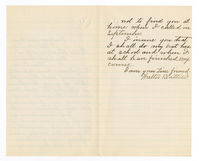 not to find you at
home when I called in
September.
I assure you that
I shall do my best here
at school and when I
shall have finished my
course
I am your true friend